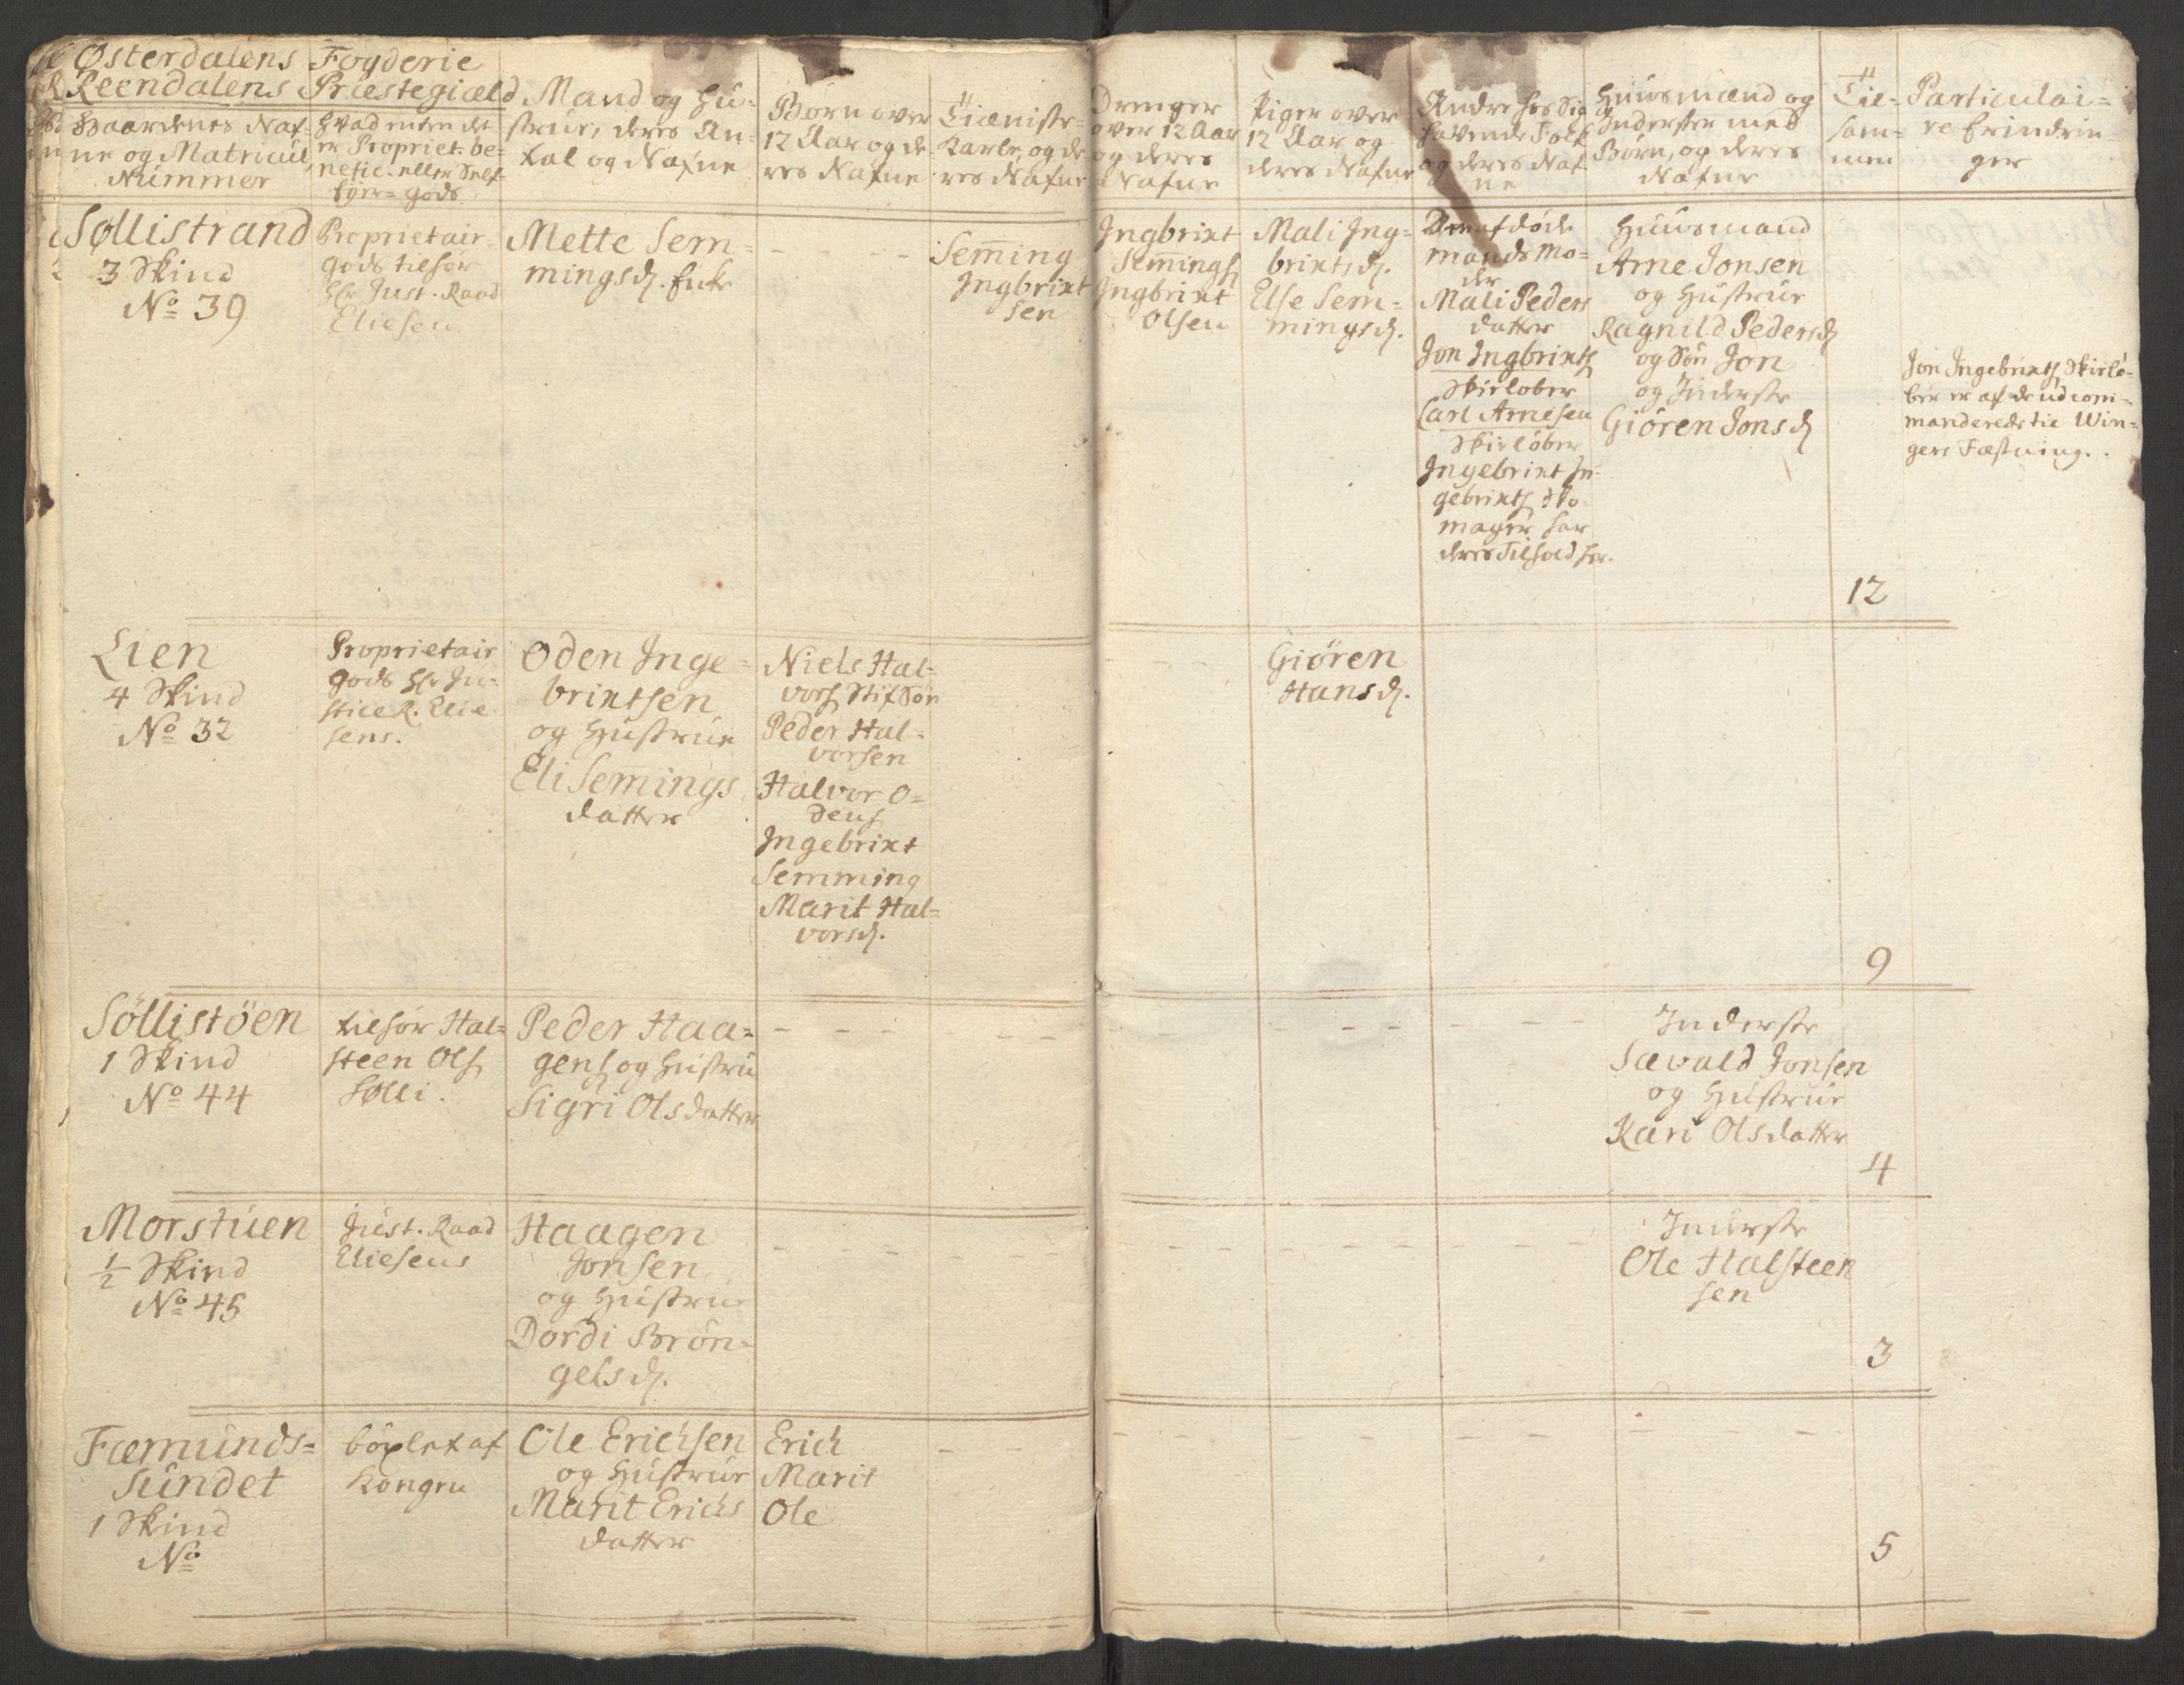 Østerdalens Fogderie
Reendalens Præstegiæld
Gaardenes Naf-
ne og Matricul
Nummer
Hvad enten det
er Propriet. be-
nefic. eller Self
Eyer-Gods.
Mand og Hu-
strue, deres An-
tal og Nafne
Børn over
12 Aar og de-
res Nafne
Tieniste-
Karle, og de
res Nafne
Drenger
over 12 Aar
og deres
Nafne
Piger over
12 Aar og
deres Nafne
Andre hos sig
havende Folk
og deres Naf-
ne
Huusmænd og
Inderster med
Børn, og deres
Nafne
Til-
sam-
men
Particulai-
re Erindrin-
ger
Søllistrand
3 Skind
No 39
Proprietair-
Gods tilhør
Hr Just. Raad
Eliesen
Mette Sem-
mingsd. Enke
- - - - -
Seming
Ingbrixt
sen
Ingbrixt
Semings
Ingbrixt
Olsen
Mali Ing-
brixtsd.
Else Sem-
mingsd.
Den afdøde
mands Mo-
der
Mali Peders
datter
Jon Ingbrixts
Skieløber
Carl Arnesen
Skieløber
Ingebrixt In-
gebrixts Sko-
mager har
deres Tilhold her.
Huusmand
Arne Jonsen
og Hustrue
Ragnild Pedersd
og Søn Jon
og Inderste
Giøren Jonsd
12
Jon Ingebrixts Skielø-
ber er af de udcom-
manderede til Win-
gers Fæstning.
Lien
4 Skind
No 32
Proprietair
Gods Hr Ju-
stice R. Elie
sens.
Oden Inge-
brixtsen
og Hustrue
Eli Semings
datter
Niels Hal-
vors Stifsøn
Peder Hal-
vorsen
Halvor O-
dens
Ingebrixt
Semming
Marit Hal-
vorsd.
- -
Giøren
Hansd.
9
Søllistöen
1 Skind
No 44
tilhør Hal-
steen Ols
Sølli.
Peder Haa-
gens og Hustru
Sigri Olsdatter
- - - - -
- - - - - -
Inderste
Sævald Jonsen
og Hustrue
Kari Olsdatter
4
Morstuen
1/2 Skind
No 45
Just. Raad
Eliesens
Haagen
Jonsen
og Hustrue
Dordi Brön-
gelsd.
- - - - - - -
- - - - - - - - - -
Inderste
Ole Halsteen
sen
3
Fæmunds-
Sundet
1 Skind
No
böxlet af
Kongen
Ole Erichsen
og Hustrue
Marit Erichs
datter
Erich
Marit
Ole
- -
- - - - - - - - - - - -
5